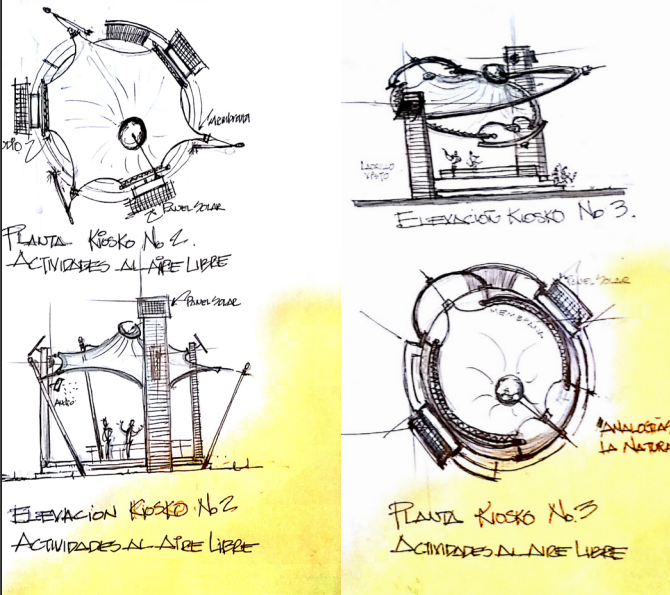 MEMBRANA
PANEL SOLAR
PLANTA KIOSKO No 2.
ACTIVIDADES AL AIRE LIBRE
PANEL SOLAR
ELEVACION KIOSKO No 2
ACTIVIDADES AL AIRE LIBRE
LADRILLO
VISTO
ELEVACION KIOSKO No 3.
PANEL SOLAR
MEMBRANA
"ANALOGIAS
LA NATURA
PLANTA KIOSKO No.3
ACTIVIDADES AL AIRE LIBRE